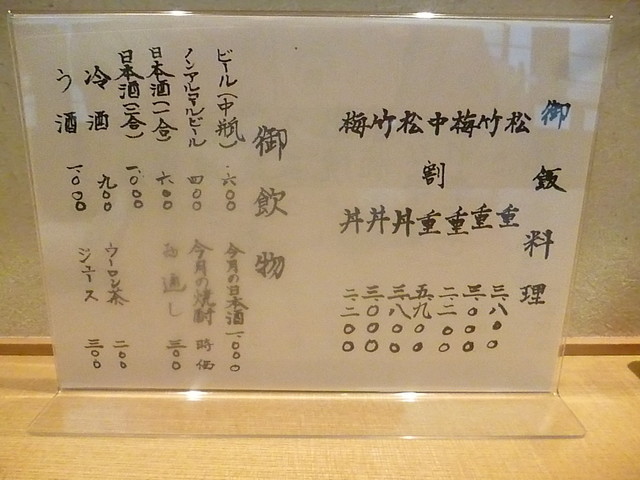 御飯料理
松重 三、八〇〇
竹重 三、〇〇〇
梅重 二、二〇〇
中割重 五、九〇〇
松丼 三、八〇〇
竹丼 三、〇〇〇
梅丼 二、二〇〇
御飲物
ビール(中瓶) 六〇〇
ノンアルコールビール 四〇〇
日本酒(一合) 六〇〇
日本酒(二合) 一、〇〇〇
冷酒 九〇〇
う酒 一、〇〇〇
今月の日本酒 一、〇〇〇
今月の焼酎 時価
お通し 三〇〇
ウーロン茶 二〇〇
ジュース 三〇〇